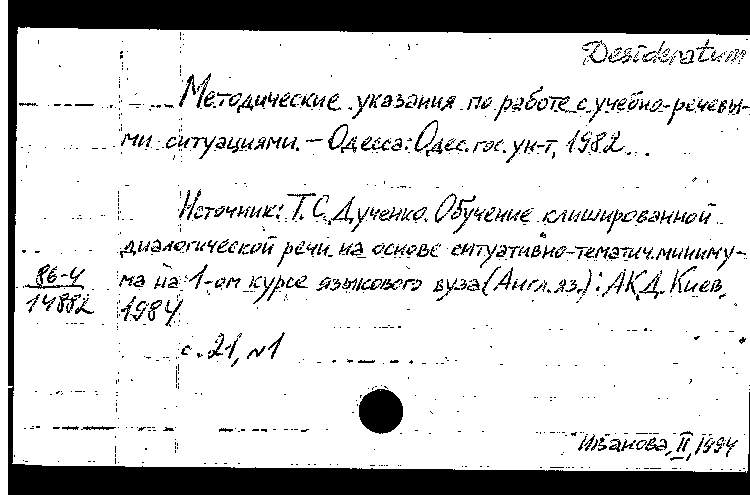 Desideratum
Методические указания по работе с учебно-речевы-
ми ситуациями. – Одесса: Одес. гос. ун-т, 1982.
Источник: Т.С. Дученко. Обучение клишированной
диалогической речи на основе ситуативно-тематич. миниму-
86-4
14882
ма на 1-ом курсе языкового вуза (Англ. яз.): АКД. Киев,
1984
с. 21, №1
Иванова, II, 1994